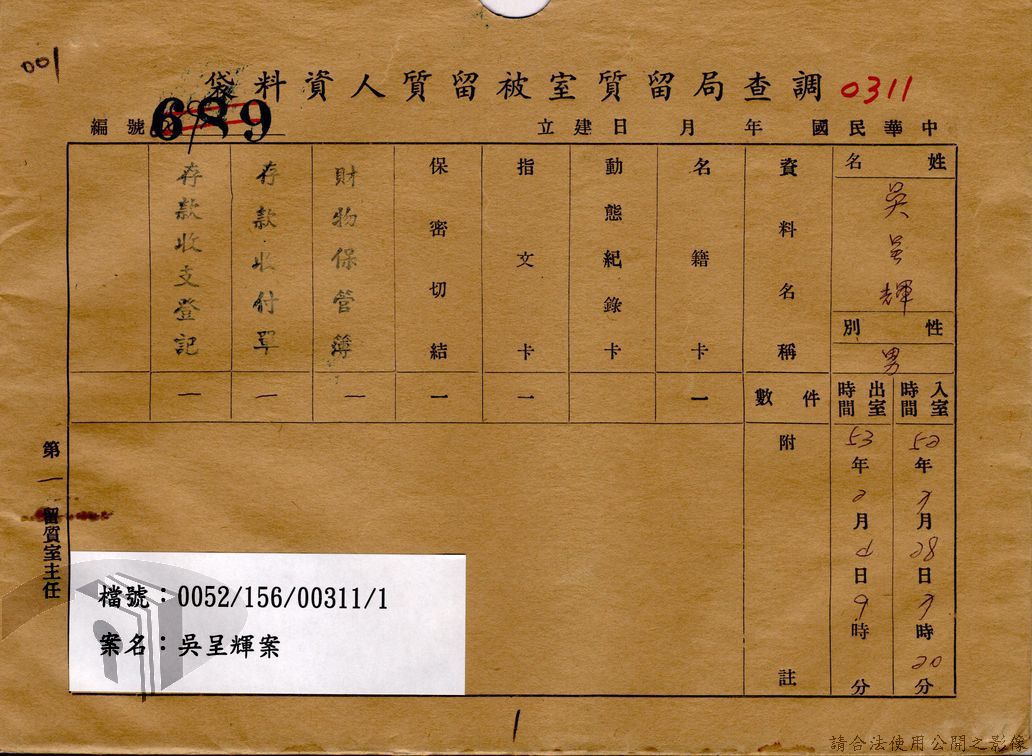 001
調查局留質室被留質人資料袋 0311
中華民國 年 月 日建立
編號 689
姓名
吳呈輝
性別
男
入室時間
52年 月28日 時20分
出室時間
53年2月 日9時 分
資料名稱
件數
附註
名籍卡
一
動態紀錄卡
指文卡
一
保密切結
一
財物保管簿
一
存款收付單
一
存款收支登記
一
第一留質室主任
檔號：0052/156/00311/1
案名：吳呈輝案
1
請合法使用公開之影像